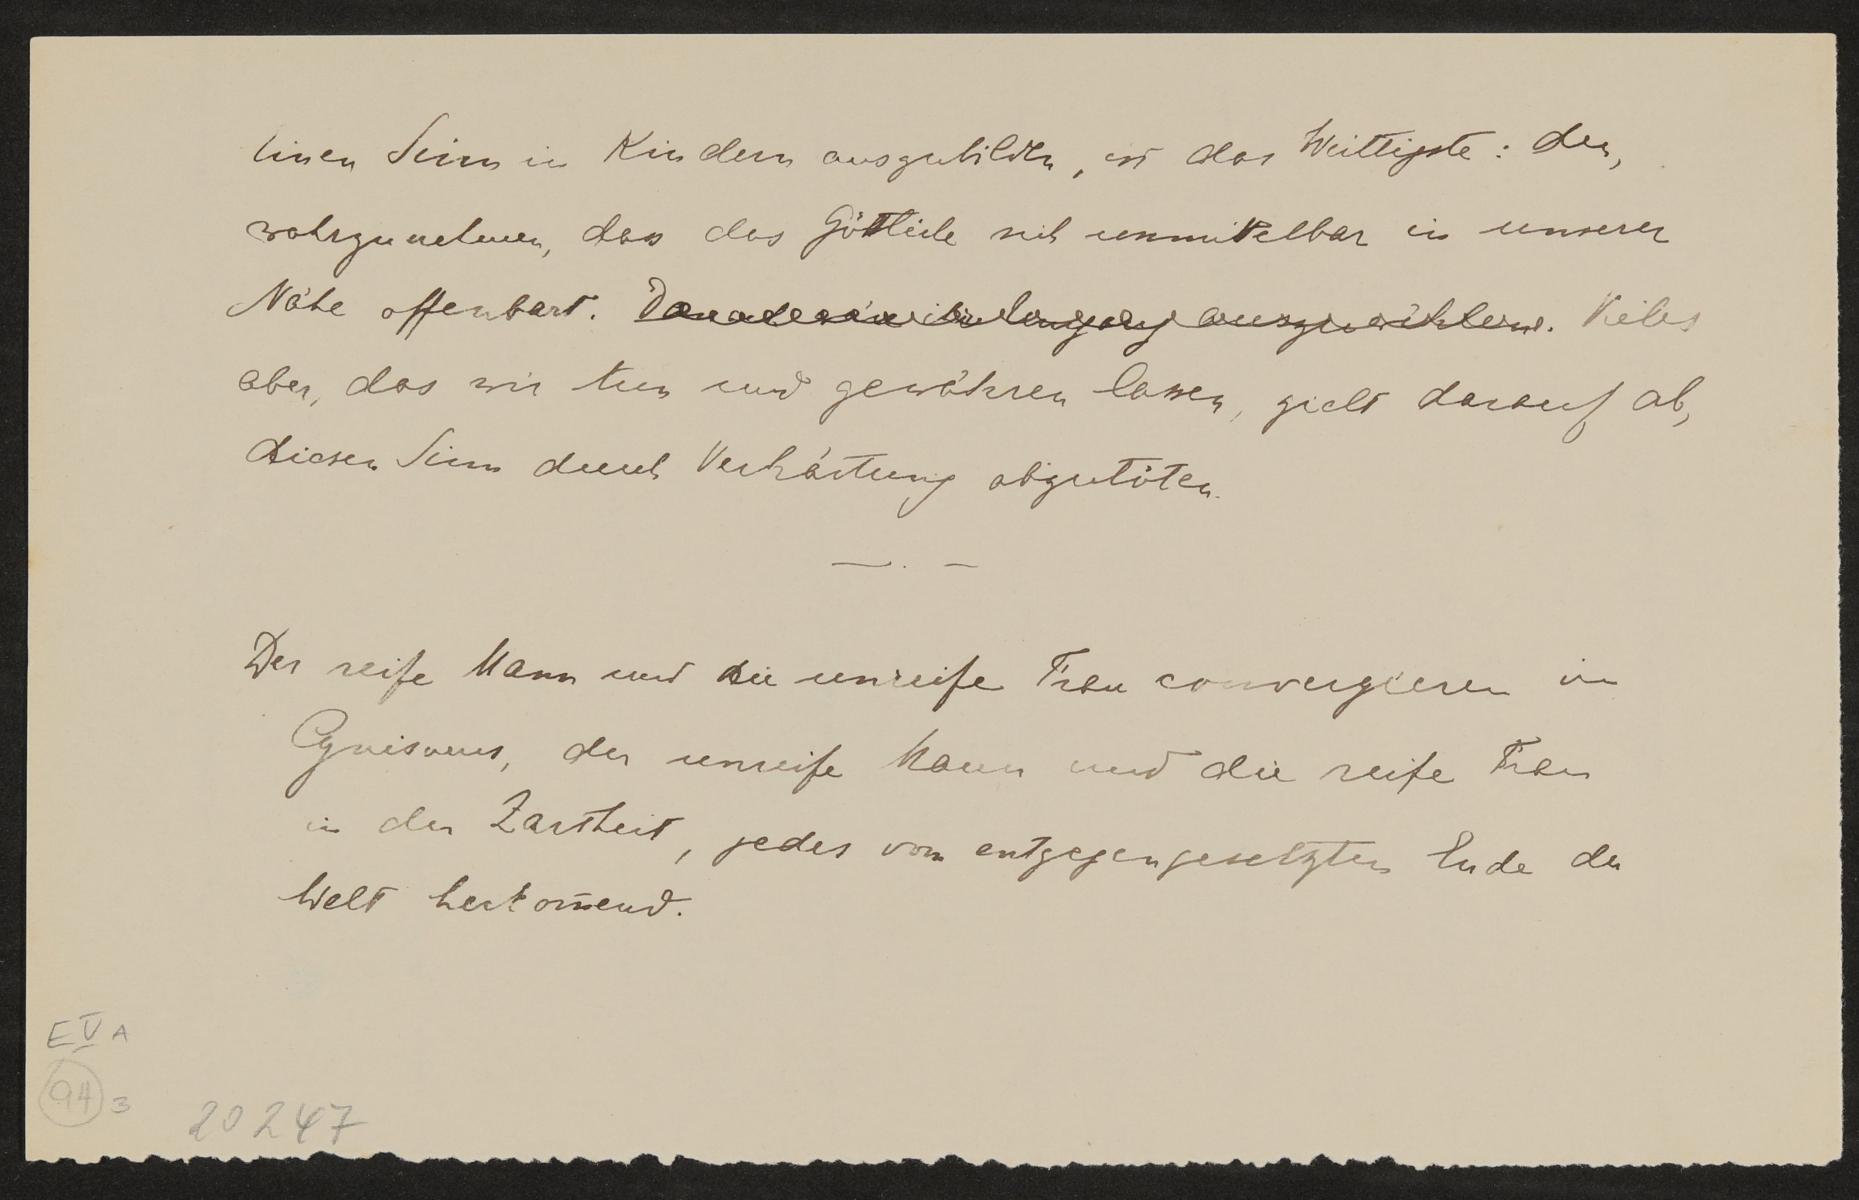 Einen Sinn in Kindern auszubilden, ist das Wichtigste: den,
wahrzunehmen, dass das Göttliche sich unmittelbar in unserer
Nähe offenbart. Vieles
aber, das wir tun und gewähren lassen, zielt darauf ab,
diesen Sinn durch Verhärtung abzutöten.
— . —
Der reife Mann und die unreife Frau convergieren im
Cynismus, der unreife Mann und die reife Frau
in der Zartheit, jedes vom entgegengesetzten Ende der
Welt herkom̄end.
E V A
94 3
20247